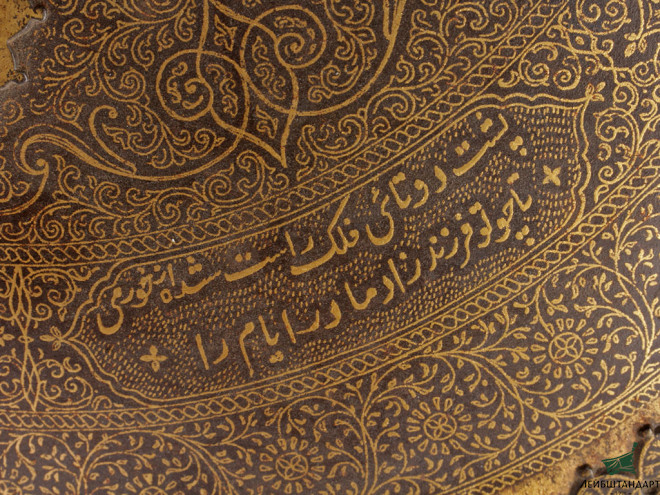 پشت دوتائی فلک راست شده از خورمی
تا چو تو فرزند زاد مادر ایام را
ЛЕЙБШТАНДАРТ